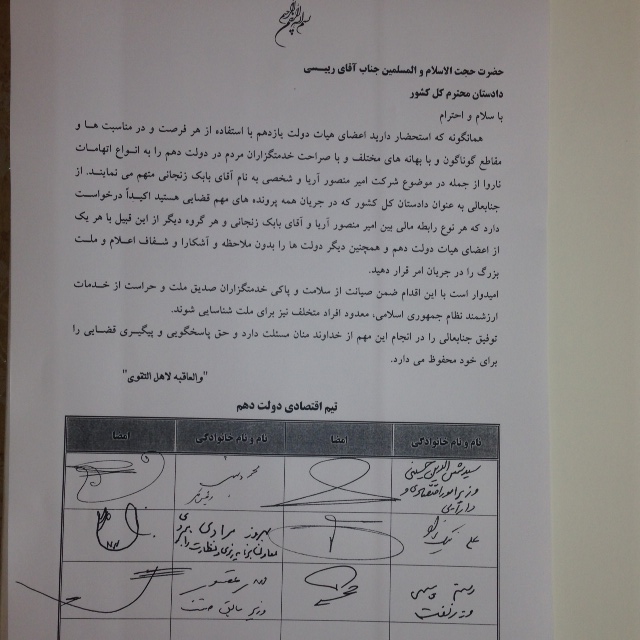 حضرت حجت الاسلام و المسلمین جناب آقای رییسی
دادستان محترم کل کشور
با سلام و احترام
همانگونه که استحضار دارید اعضای هیات دولت یازدهم با استفاده از هر فرصت و در مناسبت ها و
مقاطع گوناگون و با بهانه های مختلف و با صراحت خدمتگزاران مردم در دولت دهم را به انواع اتهامات
ناروا از جمله در موضوع شرکت امیر منصور آریا و شخصی به نام آقای بابک زنجانی متهم می نمایند. از
جنابعالی به عنوان دادستان کل کشور که در جریان همه پرونده های مهم قضایی هستید اکیداً درخواست
دارد که هر نوع رابطه مالی بین امیر منصور آریا و آقای بابک زنجانی و هر گروه دیگر از این قبیل با هر یک
از اعضای هیات دولت دهم و همچنین دیگر دولت ها را بدون ملاحظه و آشکارا و شفاف اعلام و ملت
بزرگ را در جریان امر قرار دهید.
امیدوار است با این اقدام ضمن صیانت از سلامت و پاکی خدمتگزاران صدیق ملت و حراست از خدمات
ارزشمند نظام جمهوری اسلامی، معدود افراد متخلف نیز برای ملت شناسایی شوند.
توفیق جنابعالی را در انجام این مهم از خداوند منان مسئلت دارد و حق پاسخگویی و پیگیری قضایی را
برای خود محفوظ می دارد.
"والعاقبه لاهل التقوی"
تیم اقتصادی دولت دهم
نام و نام خانوادگی امضا نام و نام خانوادگی امضا
سید شمس الدین حسینی
وزیر امور اقتصادی و
دارایی
بهروز مرادی
رستم قاسمی
وزیر نفت
وزیر سابق صنعت